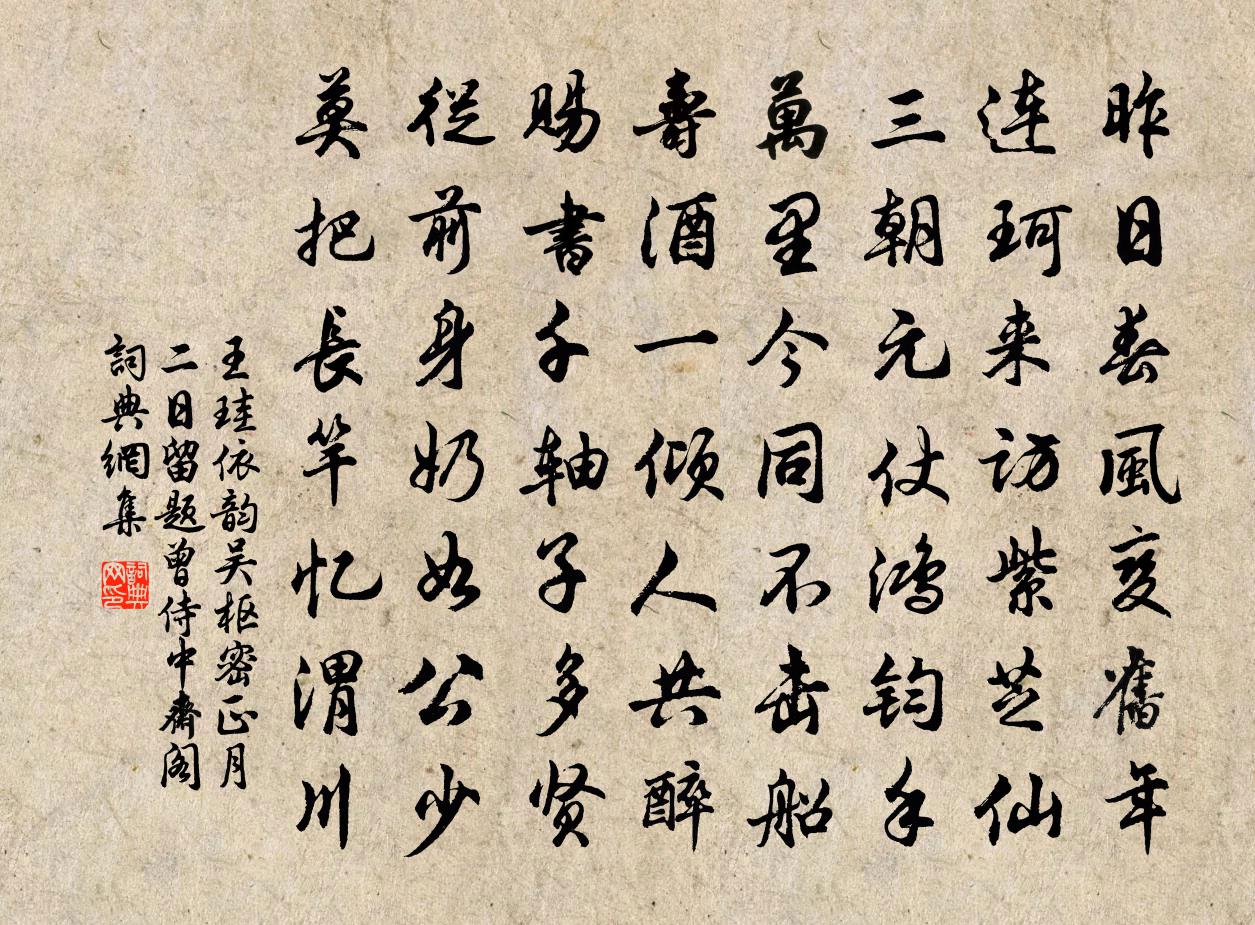 昨日春風變舊年
連珂来訪紫芝仙
三朝元仗鴻鈞手
萬里今同不击船
壽酒一傾人共醉
賜書千軸子多贤
從前身奶如公少
莫把長竿忆渭川
王珪依韵吴枢密正月
二日留題曾侍中齋阁
詞典網集
詞典网印